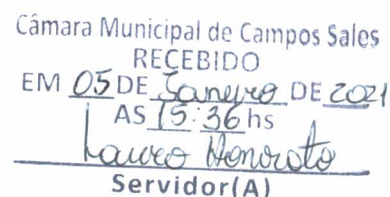 Câmara Municipal de Campos Sales
RECEBIDO
EM 05 DE Janeiro DE 2021
AS 15:36 hs
Lauro Honorato
Servidor(A)